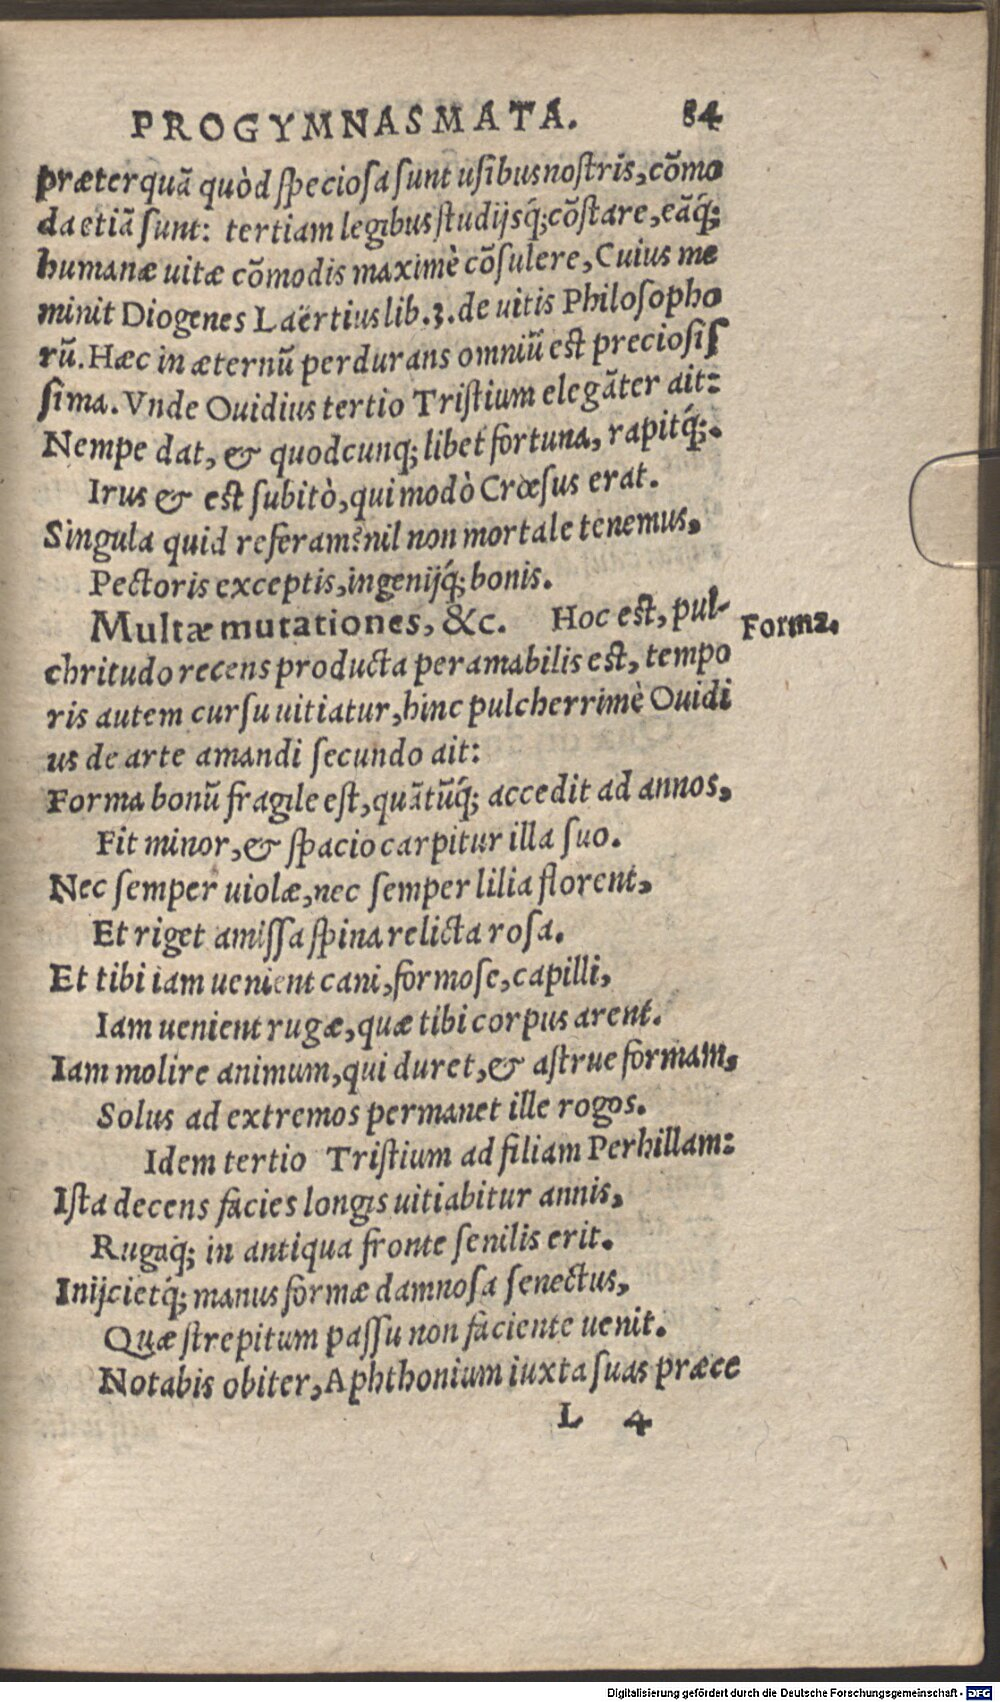 PROGYMNASMATA. 84
præterquã quòd ſpecioſa ſunt uſibus noſtris, cõmo
da etiã ſunt: tertiam legibus ſtudijsq́; cõſtare, eãq́;
humanæ uitæ cõmodis maximè cõſulere, Cuius me
minit Diogenes Laërtius lib. 3. de uitis Philoſopho
rũ. Hæc in æternũ perdurans omniũ eſt precioſiſ
ſima. Vnde Ouidius tertio Triſtium elegãter ait:
Nempe dat, & quodcunq; libet fortuna, rapitq́;.
Irus & eſt ſubitò, qui modò Crœſus erat.
Singula quid referam? nil non mortale tenemus,
Pectoris exceptis, ingenijq́; bonis.
Multæ mutationes, &c. Hoc eſt, pul-
Forma.
chritudo recens producta peramabilis eſt, tempo
ris autem curſu uitiatur, hinc pulcherrimè Ouidi
us de arte amandi ſecundo ait:
Forma bonũ fragile eſt, quãtũq́; accedit ad annos,
Fit minor, & ſpacio carpitur illa ſuo.
Nec ſemper uiolæ, nec ſemper lilia florent,
Et riget amiſſa ſpina relicta roſa.
Et tibi iam uenient cani, formoſe, capilli,
Iam uenient rugæ, quæ tibi corpus arent.
Iam molire animum, qui duret, & aſtrue formam,
Solus ad extremos permanet ille rogos.
Idem tertio Triſtium ad filiam Perhillam:
Iſta decens facies longis uitiabitur annis,
Rugaq́; in antiqua fronte ſenilis erit.
Inijcietq́; manus formæ damnoſa ſenectus,
Quæ ſtrepitum paſſu non faciente uenit.
Notabis obiter, Aphthonium iuxta ſuas præce
L 4
Digitalisierung gefördert durch die Deutsche Forschungsgemeinschaft - DFG